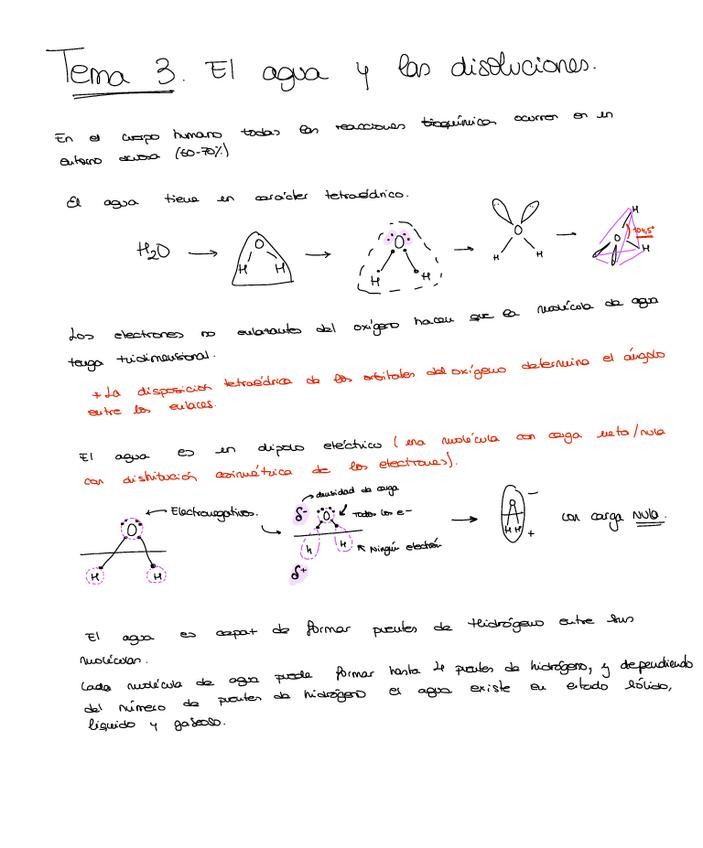 Tema 3. El agua y las disoluciones.
En el cuerpo humano todas las reacciones bioquímicas ocurren en un
entorno acuoso (60-70%)
El agua tiene un carácter tetraédrico.
H₂O → O H H → O H H → O H H → O H H 104,5°
Los electrones no enlazantes del oxígeno hacen que la molécula de agua
tenga tridimensional.
+ La disposición tetraédrica de los orbitales del oxígeno determina el ángulo
entre los enlaces.
El agua es un dipolo eléctrico (una molécula con carga neta/nula
con distribución asimétrica de los electrones).
densidad de carga
Electronegativos.
δ- O Todos los e-
O
H H
h H Ningún electrón
δ+
H H - +
con carga nula.
El agua es capaz de formar puentes de Hidrógeno entre sus
moléculas.
Cada molécula de agua puede formar hasta 4 puentes de hidrógeno, y dependiendo
del número de puentes de hidrógeno el agua existe en estado sólido,
líquido y gaseoso.